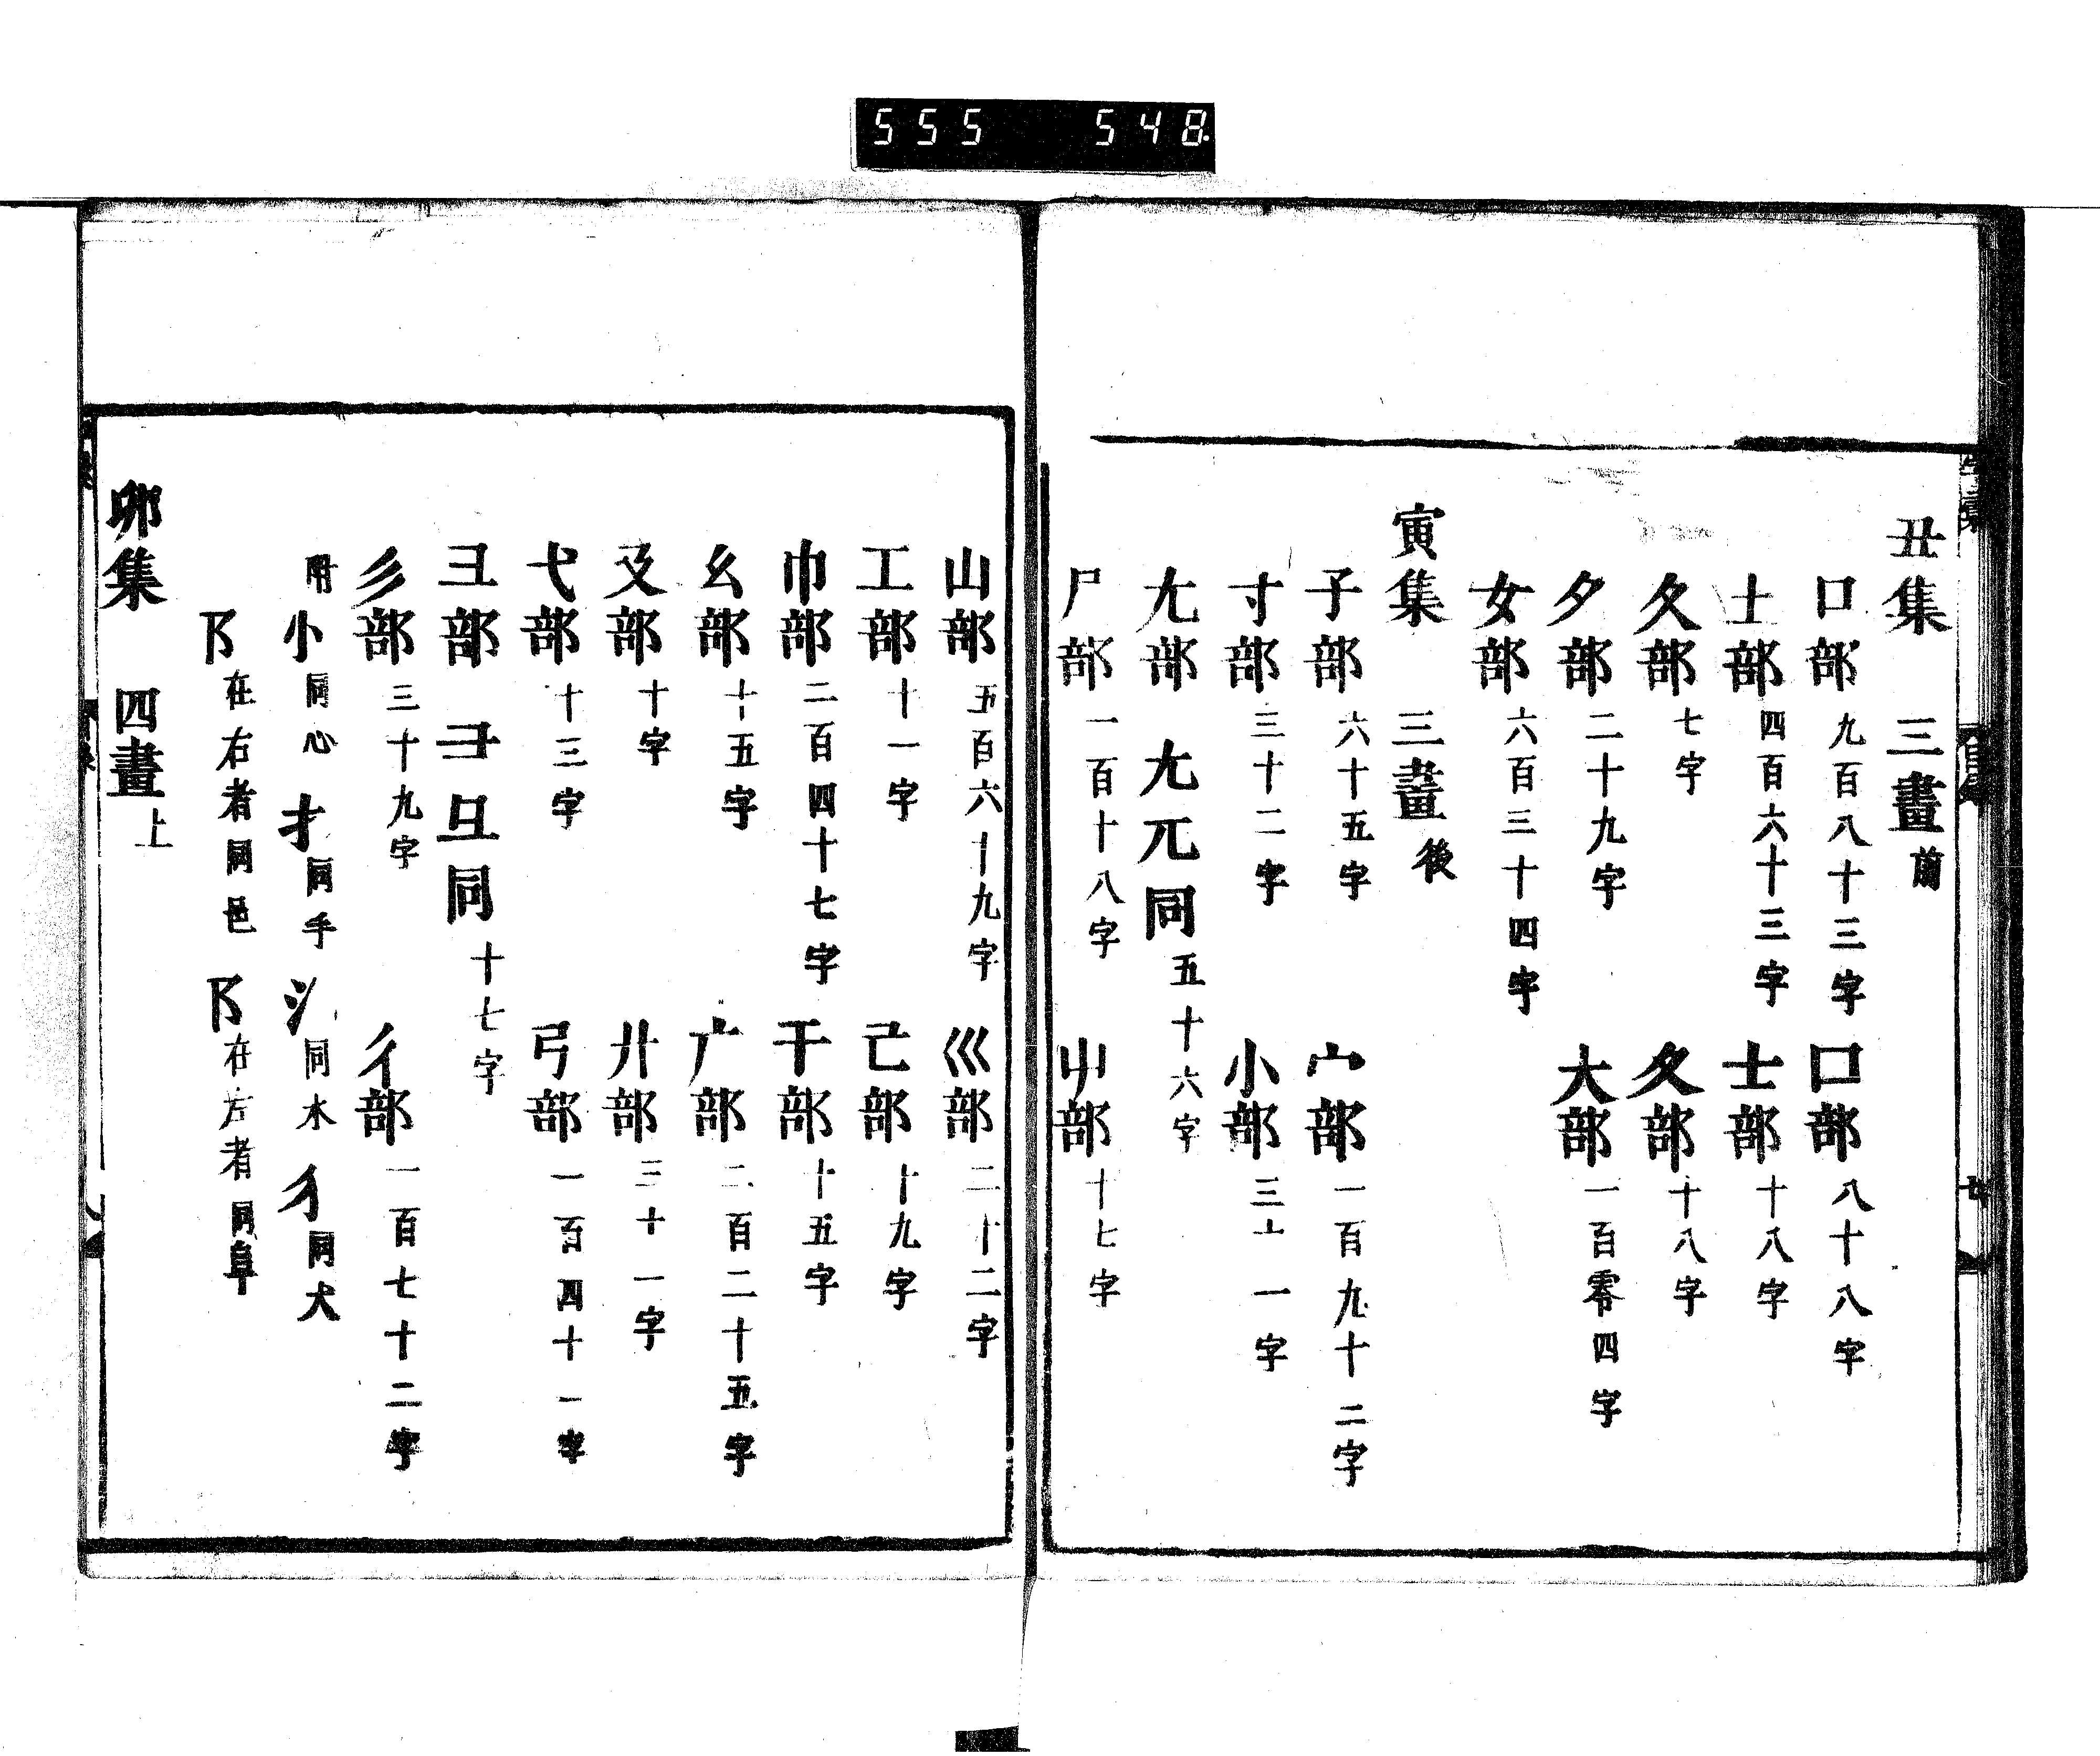 555 548.
丑集 三畫前
口部 九百八十三字 囗部 八十八字
土部 四百六十三字 士部 十八字
夂部 七字 夊部 十八字
夕部 二十九字 大部 一百零四字
女部 六百三十四字
寅集 三畫後
子部 六十五字 宀部 一百九十二字
寸部 三十二字 小部 三十一字
尢部 尣兀同 五十六字
尸部 一百十八字 屮部 十七字
山部 五百六十九字 巛部 二十二字
工部 十一字 己部 十九字
巾部 二百四十七字 干部 十五字
幺部 十五字 广部 二百二十五字
廴部 十字 廾部 三十一字
弋部 十三字 弓部 一百四十一字
彐部 彑同 十七字
彡部 三十九字 彳部 一百七十二字
附 㣺同心 扌同手 氵同水 犭同犬
阝在右者同邑 阝在左者同阜
卯集 四畫上